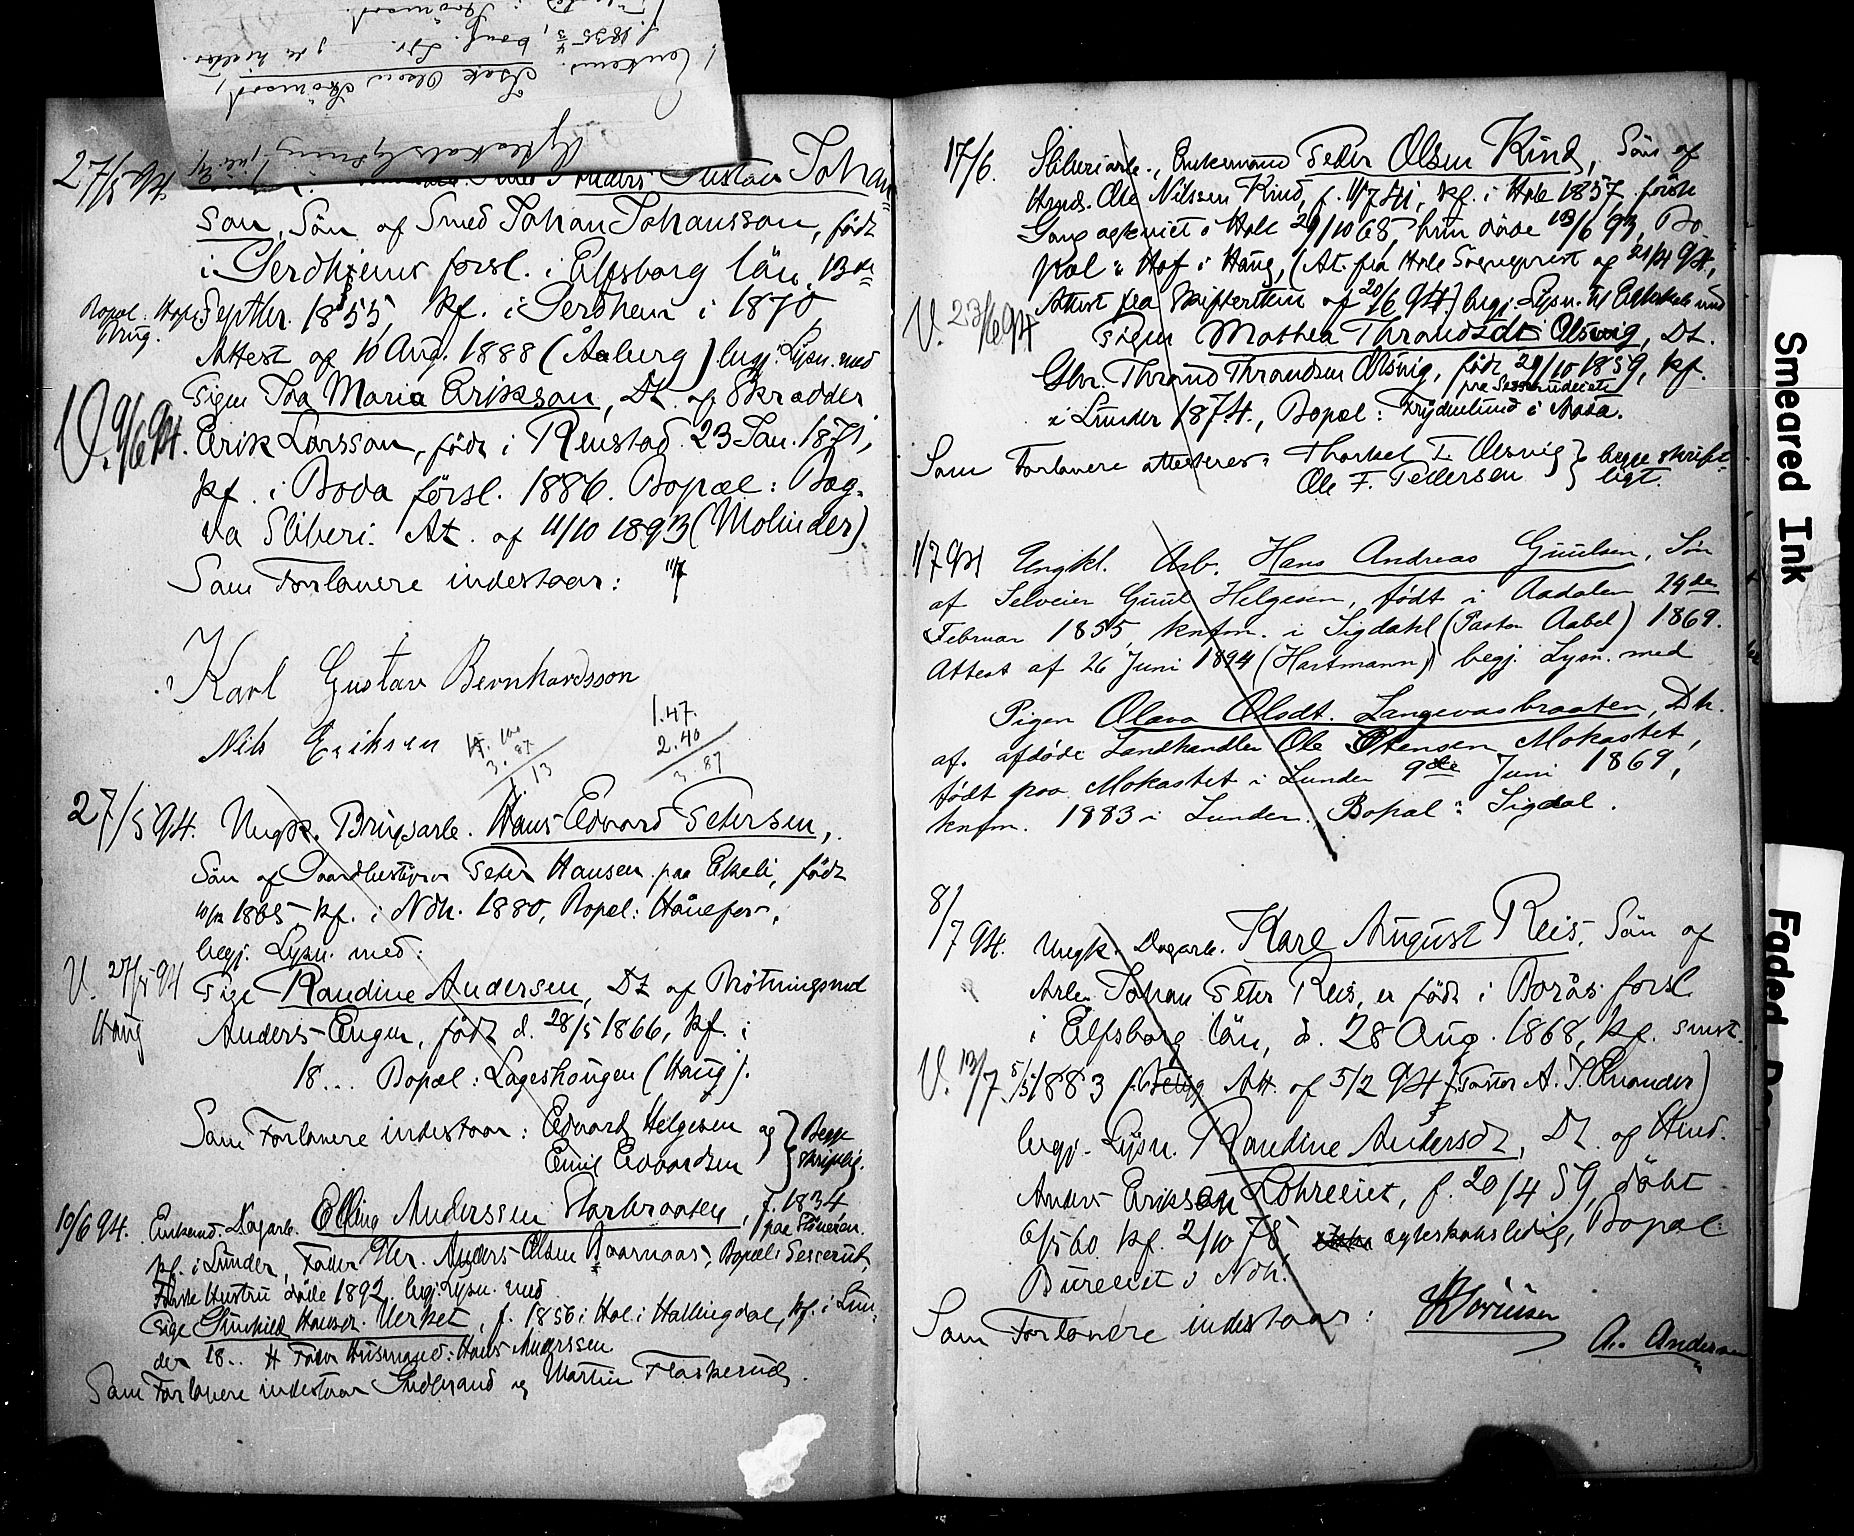 27/5 94.
Gustav Johan
son, Sön af Smed Johan Johansson, födt
i Gerdhems forsl. i Elfsborg län, 13de
Bopæl: Hofs
brug.
Septbr. 1855, kf. i Gerdhem i 1870
Attest af 10 Aug. 1888 (Aaberg) begj. Lysn. med
V. 9/6 94.
Pigen Ida Maria Erikson, Dt. af Skrædder
Erik Larsson, födt i 23 Jan. 1871,
kf. i Boda försl. 1886. Bopæl: Bæg-
na Sliberi. At. af 11/10 1893 (Molinder).
Som Forlovere indestaar:
Karl Gustav Bernhardsson
Nils Eriksen
1.47.
2.40
3.87
27/5 94.
Ungk. Brugsarb. Hans Edvard Petersen,
Sön af Gaardbestyrer Peter Hansen paa Ekeli, födt
10/12 1865 kf. i Ndh. 1880, Bopæl: Hönefos,
begj. Lysn. med:
V. 27/5 94
Haug
Pige Randine Andersen, Dt. af Brötningsmd
Anders Engen, födt d. 28/5 1866, kf. i
18... Bopæl: Lageshaugen (Haug).
Som Forlovere indestaar: Edvard Helgesen og
Emil Edvardsen
Begge
skriftlig.
10/6 94.
Enkemd. Dagarb. Elling Anderssen Storbraaten, f. 1834
kf. i Lunder, Fader Gbr. Anders Olsen
Förste Hustru döde 1892. begj. Lysn. med
Pige Gunhild Hansdr. Verket, f. 1856 i Hol i Hallingdal, kf. i Lun-
der 18.. Fader Husmand: Hans Anderssen
Som Forlovere indestaar Gudbrand og Martin Flaskerud.
17/6.
Sliberiarb., Enkemand Peder Olsen Kind, Sön af
Hmd. Ole Nilsen Kind, f. 11/7 41, kf. i Hole 1857, förste
Gang ægteviet i Hole 29/10 68, hun döde 13/6 93, Bo-
pæl: Hof i Haug, (At. fra Hole Sognepræst af 21/4 94,
V. 23/6 94
Attest fra Skifteretten af 20/6 94.) begj. Lysn. til Ægteskab med
Pigen Mathea Thrandsdt Olsvig, Dt.
Gbr. Thrand Thrandsen Olsvig, födt 29/10 1859, kf.
i Lunder 1874., Bopæl: Frydenlund i Aasa.
Som Forlovere attesteres: Thorkel T. Olsvig
Ole F. Pedersen
begge skrift-
ligt.
1/7 94
Ungkl. Arb. Hans Andreas Guulsen, Søn
af Selveier Guul Helgesen, født i Aadalen 19de
Februar 1855, knfm. i Sigdahl (Pastor Aabel) 1869.
Attest af 26 Juni 1894 (Hartmann) begj. Lysn. med
Pigen Olava Olsdt. Langevasbraaten, Dtr.
af afdøde Landhandler Ole Stensen Mokastet,
født paa Mokastet i Lunder 9de Juni 1869,
knfm. 1883 i Lunder. Bopæl: Sigdal.
8/7 94.
Ungk. Dagarb. Karl August Reis, Sön af
Arb. Johan Peter Reis, er födt i Borås forsl.
i Elfsborg län, d. 28 Aug. 1868, kf. smst.
V. 13/7
5/5 1883 Att. af 5/2 94 (Pastor A. J. Enander)
begj. Lysn. Randine Andersdt, Dt. af Hmd.
Anders Eriksen f. 20/4 59, döbt
6/5 60 kf. 2/10 78, ægteskabsledig, Bopæl:
i Ndh.
Som Forlovere indestaar:
A. Andersen
Smeared Ink
Faded